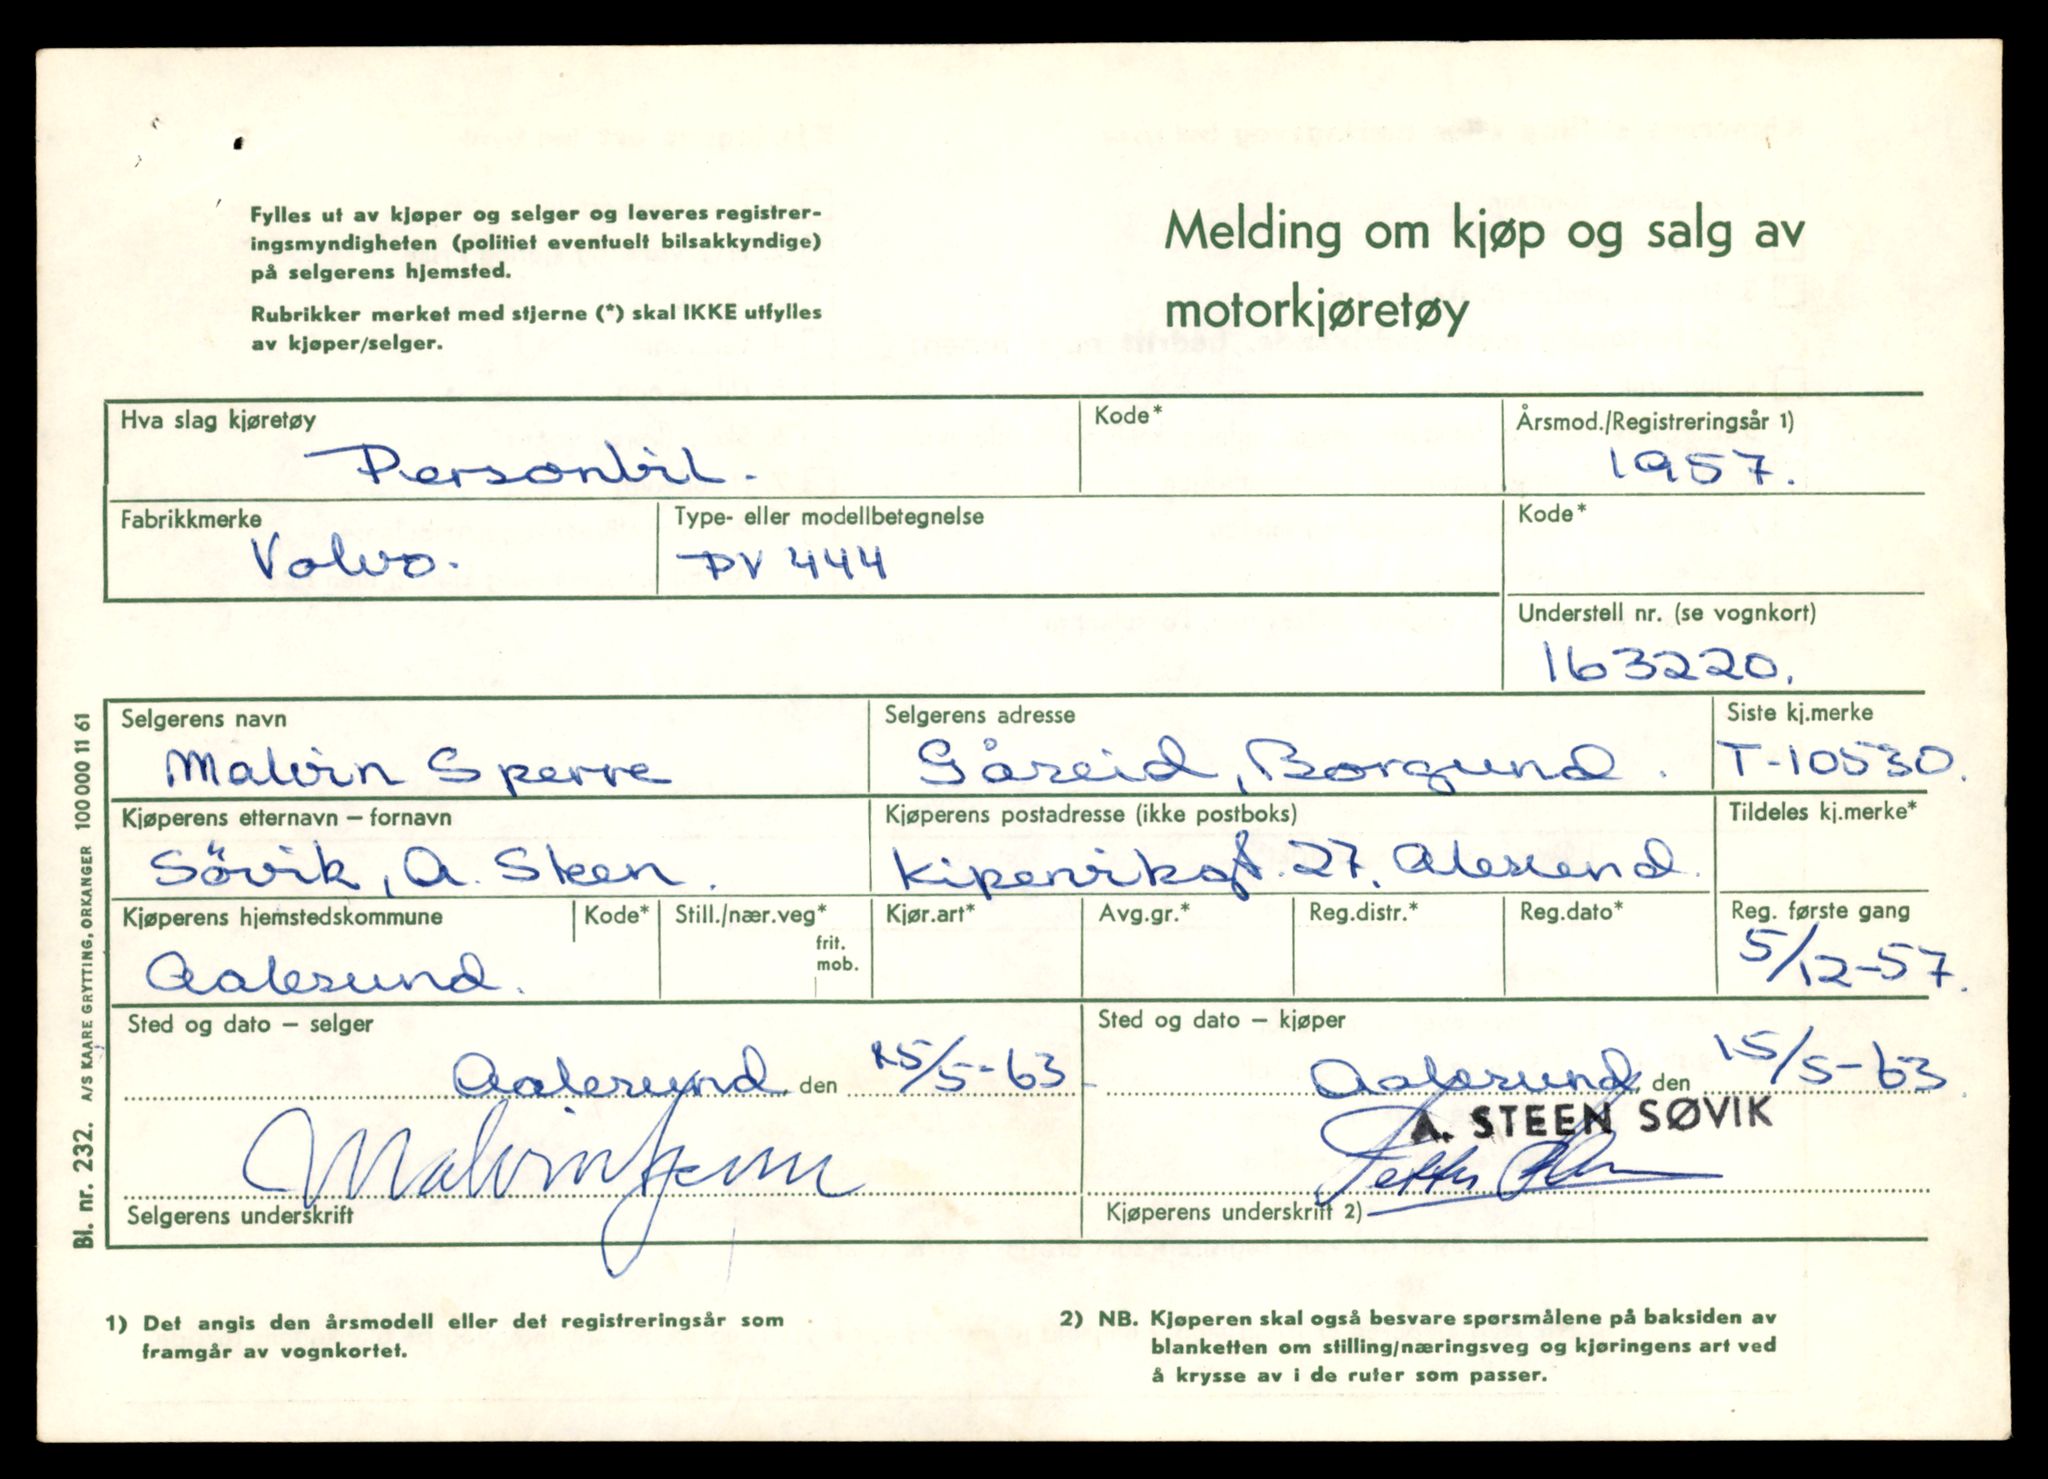 Fylles ut av kjøper og selger og leveres registrer-
ingsmyndigheten (politiet eventuelt bilsakkyndige)
på selgerens hjemsted.
Rubrikker merket med stjerne (*) skal IKKE utfylles
av kjøper/selger.
Melding om kjøp og salg av
motorkjøretøy
Hva slag kjøretøy
Personbil.
Kode*
Årsmod./Registreringsår 1)
1957.
Fabrikkmerke
Volvo.
Type- eller modellbetegnelse
PV 444
Kode*
Understell nr. (se vognkort)
163220.
Selgerens navn
Malvin Sperre
Selgerens adresse
Gåseid, Borgund.
Siste kj.merke
T-10530.
Kjøperens etternavn – fornavn
Sövik, A. Steen.
Kjøperens postadresse (ikke postboks)
Kipervikgt. 27, Alesund.
Tildeles kj.merke*
Kjøperens hjemstedskommune
Aalesund.
Kode*
Still./nær.veg*
frit.
mob.
Kjør.art*
Avg.gr.*
Reg.distr.*
Reg.dato*
Reg. første gang
5/12-57.
Sted og dato – selger
Aalesund den 15/5-63
Malvin Sperre
Selgerens underskrift
Sted og dato – kjøper
Aalesund den 15/5-63
A. STEEN SØVIK
Kjøperens underskrift 2)
Bl. nr. 232. A/S KAARE GRYTTING, ORKANGER 100 000 11 61
1) Det angis den årsmodell eller det registreringsår som
framgår av vognkortet.
2) NB. Kjøperen skal også besvare spørsmålene på baksiden av
blanketten om stilling/næringsveg og kjøringens art ved
å krysse av i de ruter som passer.